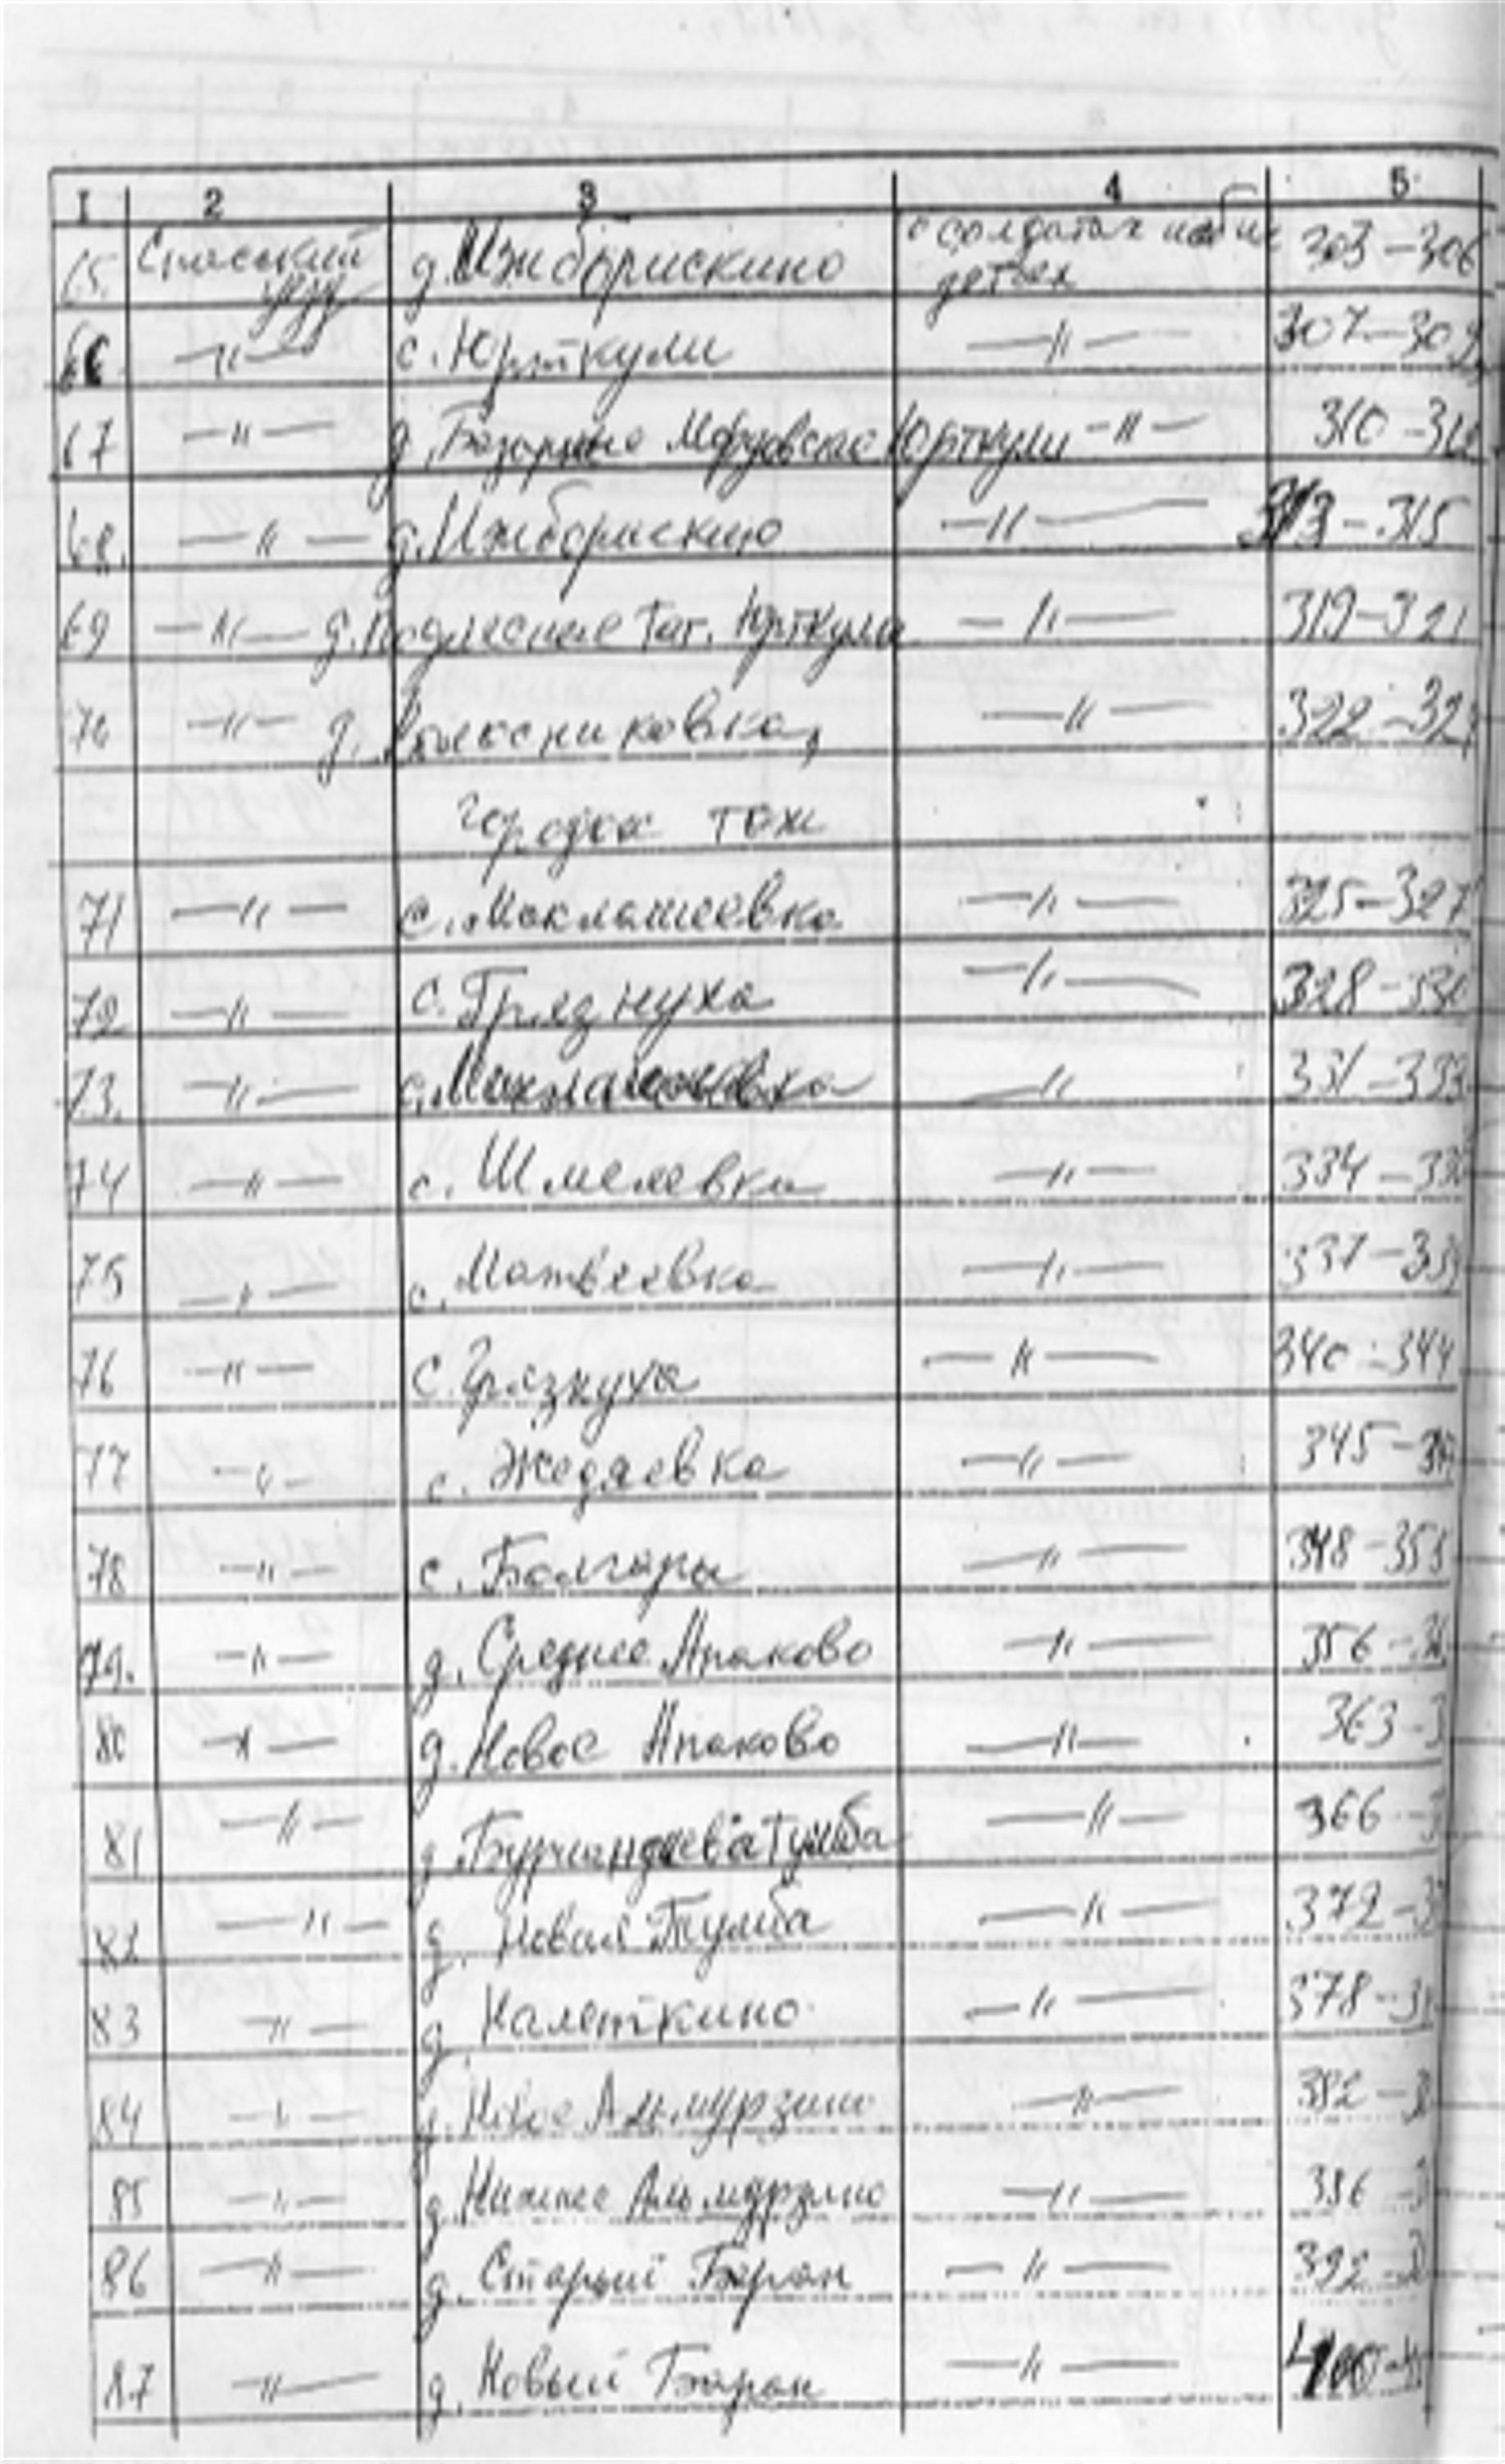 I 2 3 4 5
65. Спасский уезд д. Ижборискино о солдатах и их детях 303-306
66 —"— с. Юрткули —"— 307-309
67 —"— д. Базарные Мордовские Юрткули —"— 310-312
68. —"— д. Ижборискино —"— 313-315
69 —"— д. Подлесные Тат. Юрткули —"— 319-321
70 —"— д. Колесниковка, —"— 322-324
городок тож
71 —"— с. Маклашеевка —"— 325-327
72 —"— с. Грязнуха —"— 328-330
73. —"— с. Маклашеевка —"— 331-333
74 —"— с. Шмелевка —"— 334-336
75 —"— с. Матвеевка —"— 337-339
76 —"— с. Грязнуха —"— 340-344
77 —"— с. Жедяевка —"— 345-
78 —"— с. Болгары —"— 348-355
79. —"— д. Среднее Апаково —"— 356-
80 —"— д. Новое Апаково —"— 363-3
81 —"— д. Тумба —"— 366-3
82 —"— д. Новая Тумба —"— 372-3
83 —"— д. Налеткино —"— 378-3
84 —"— д. Новое Альмурзино —"— 382-
85 —"— д. Нижнее Альмурзино —"— 386
86 —"— д. Старый Баран —"— 392-
87 —"— д. Новый Баран —"— 400-